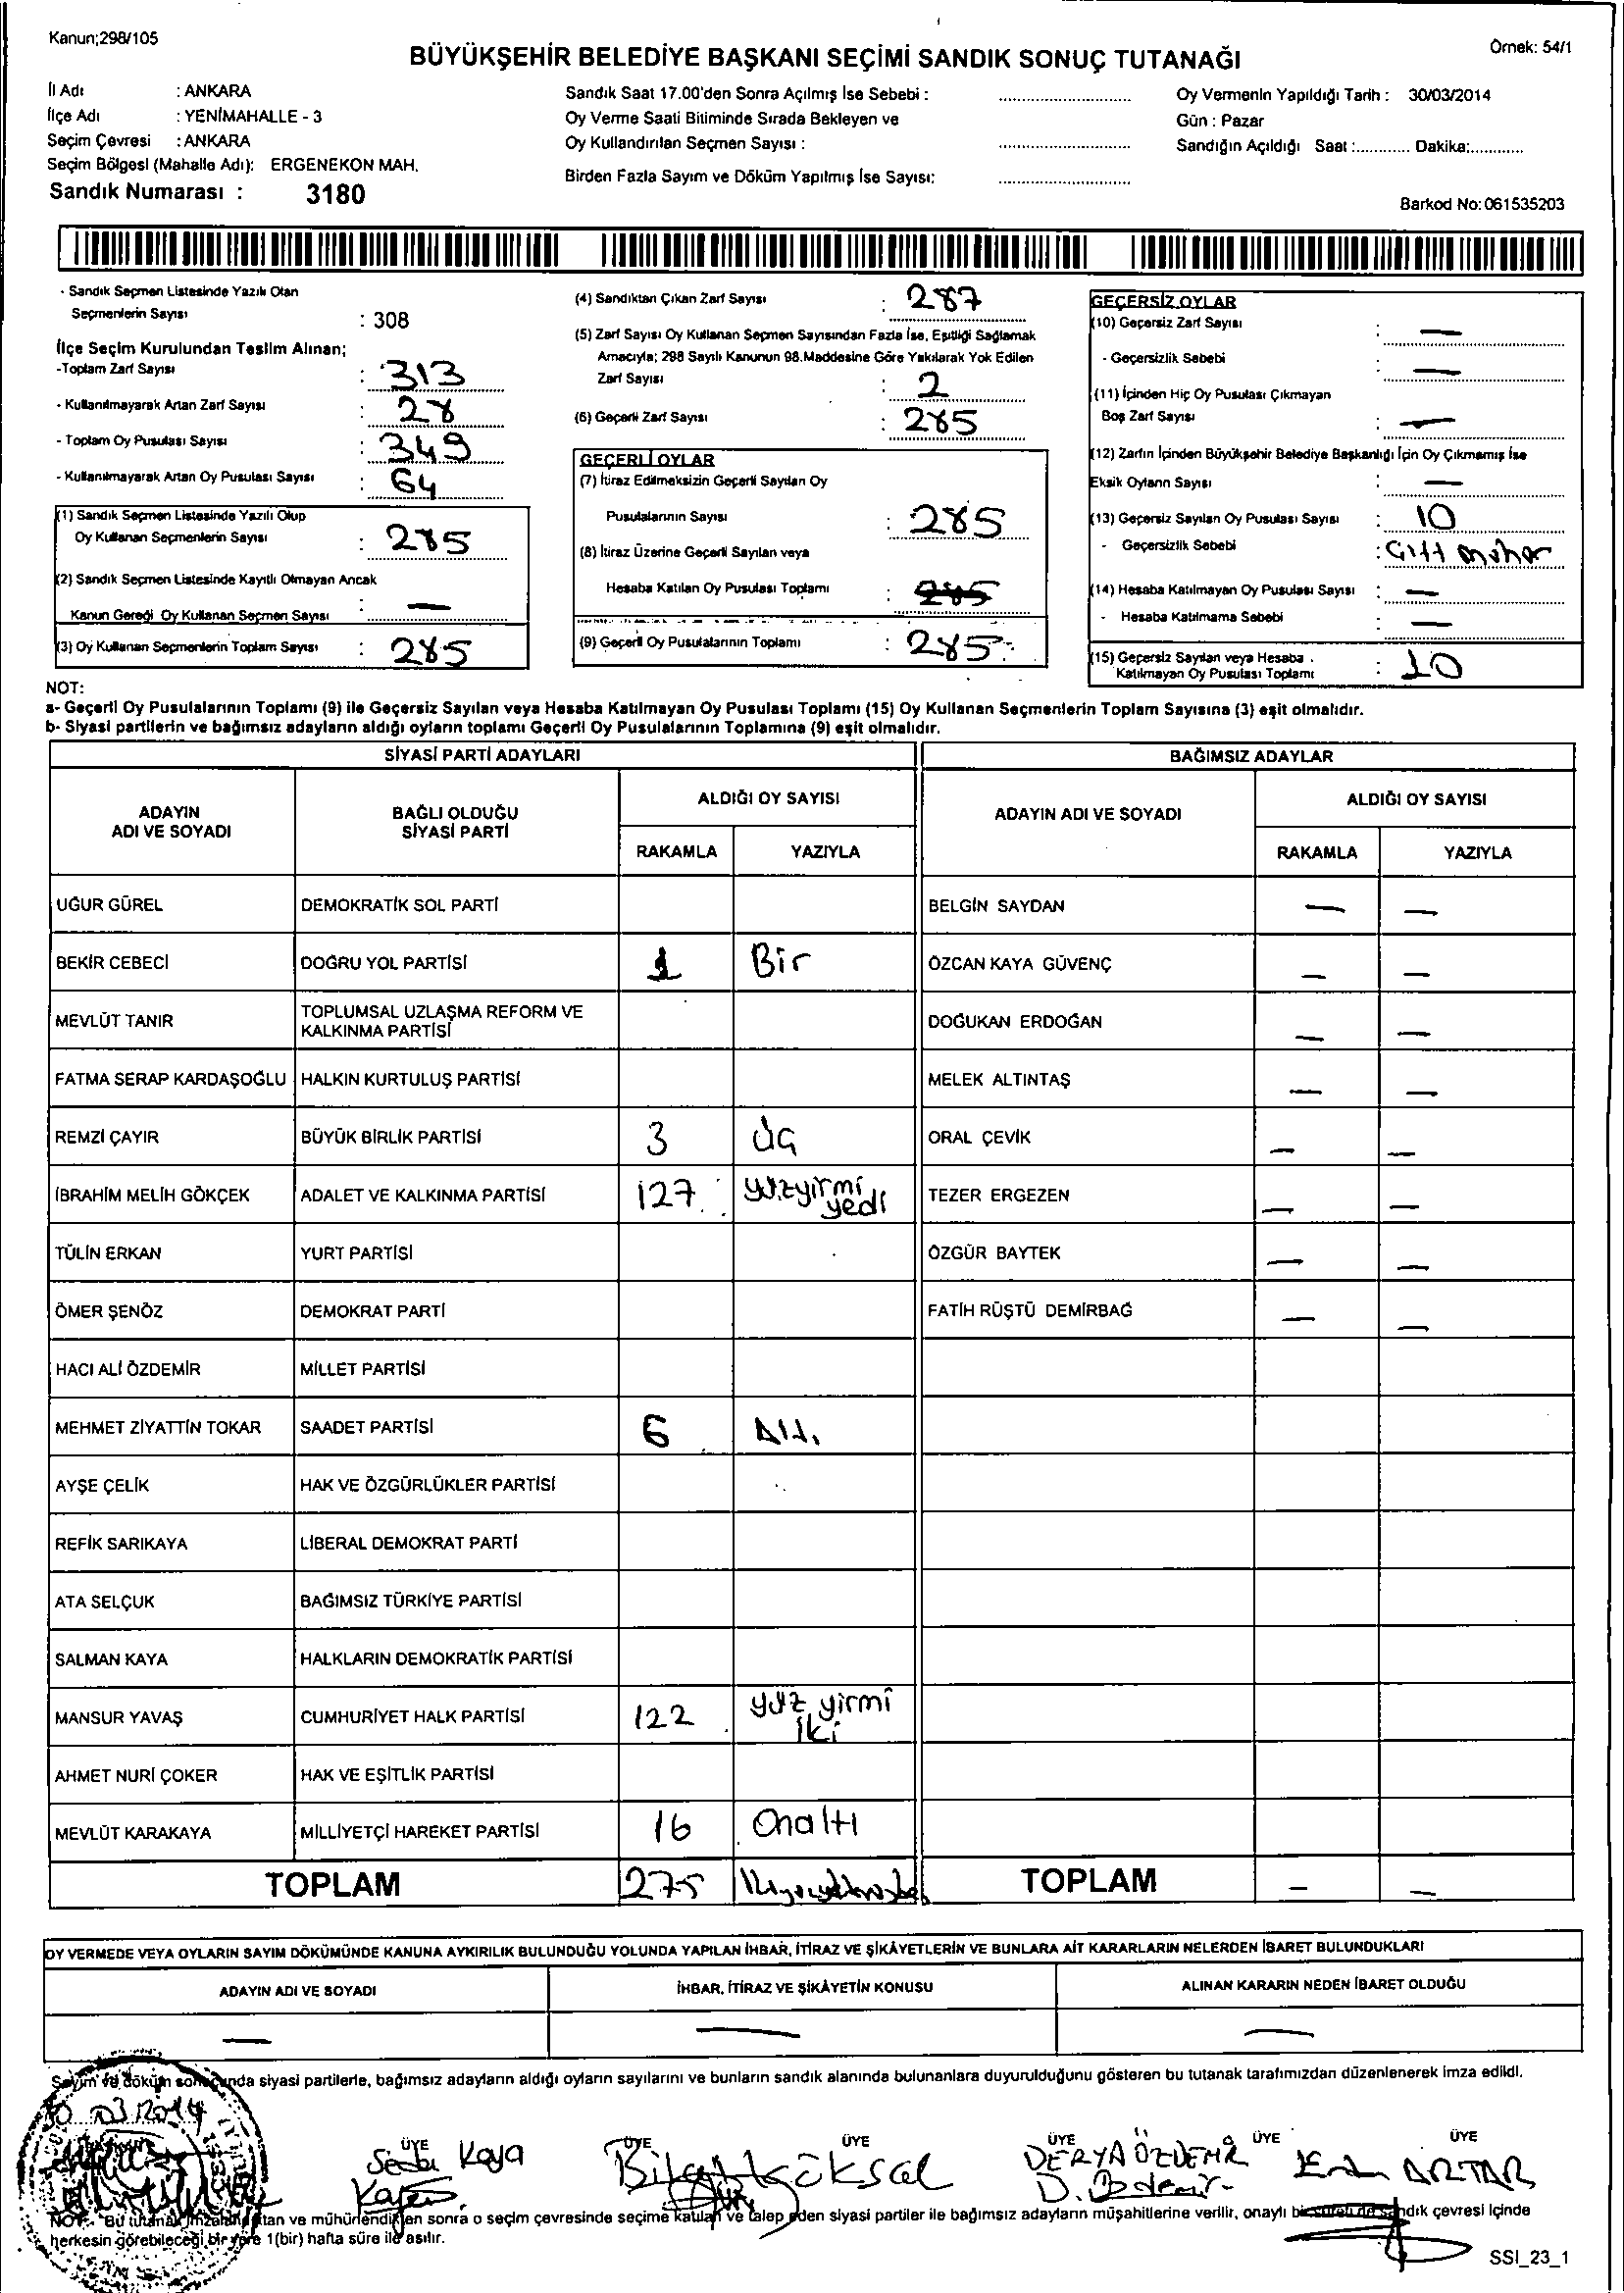 Kanun;298/105
Örnek: 54/1
BÜYÜKŞEHİR BELEDİYE BAŞKANI SEÇİMİ SANDIK SONUÇ TUTANAĞI
İl Adı : ANKARA
İlçe Adı : YENİMAHALLE - 3
Seçim Çevresi : ANKARA
Seçim Bölgesi (Mahalle Adı): ERGENEKON MAH.
Sandık Numarası : 3180
Sandık Saat 17.00'den Sonra Açılmış İse Sebebi :
Oy Verme Saati Bitiminde Sırada Bekleyen ve
Oy Kullandırılan Seçmen Sayısı :
Birden Fazla Sayım ve Döküm Yapılmış İse Sayısı:
Oy Vermenin Yapıldığı Tarih : 30/03/2014
Gün : Pazar
Sandığın Açıldığı Saat :............ Dakika:............
Barkod No: 061535203
- Sandık Seçmen Listesinde Yazılı Olan
Seçmenlerin Sayısı : 308
İlçe Seçim Kurulundan Teslim Alınan;
-Toplam Zarf Sayısı : 313
- Kullanılmayarak Artan Zarf Sayısı : 28
- Toplam Oy Pusulası Sayısı : 349
- Kullanılmayarak Artan Oy Pusulası Sayısı : 64
(1) Sandık Seçmen Listesinde Yazılı Olup
Oy Kullanan Seçmenlerin Sayısı : 285
(2) Sandık Seçmen Listesinde Kayıtlı Olmayan Ancak
Kanun Gereği Oy Kullanan Seçmen Sayısı : —
(3) Oy Kullanan Seçmenlerin Toplam Sayısı : 285
(4) Sandıktan Çıkan Zarf Sayısı : 287
(5) Zarf Sayısı Oy Kullanan Seçmen Sayısından Fazla İse, Eşitliği Sağlamak
Amacıyla; 298 Sayılı Kanunun 98.Maddesine Göre Yakılarak Yok Edilen
Zarf Sayısı : 2
(6) Geçerli Zarf Sayısı : 285
GEÇERLİ OYLAR
(7) İtiraz Edilmeksizin Geçerli Sayılan Oy
Pusulalarının Sayısı : 285
(8) İtiraz Üzerine Geçerli Sayılan veya
Hesaba Katılan Oy Pusulası Toplamı : 285
(9) Geçerli Oy Pusulalarının Toplamı : 285
GEÇERSİZ OYLAR
(10) Geçersiz Zarf Sayısı : —
- Geçersizlik Sebebi : —
(11) İçinden Hiç Oy Pusulası Çıkmayan
Boş Zarf Sayısı : —
(12) Zarfın İçinden Büyükşehir Belediye Başkanlığı İçin Oy Çıkmamış İse
Eksik Oyların Sayısı : —
(13) Geçersiz Sayılan Oy Pusulası Sayısı : 10
- Geçersizlik Sebebi : Çift mühür
(14) Hesaba Katılmayan Oy Pusulası Sayısı : —
- Hesaba Katılmama Sebebi : —
(15) Geçersiz Sayılan veya Hesaba
Katılmayan Oy Pusulası Toplamı : 10
NOT:
a- Geçerli Oy Pusulalarının Toplamı (9) ile Geçersiz Sayılan veya Hesaba Katılmayan Oy Pusulası Toplamı (15) Oy Kullanan Seçmenlerin Toplam Sayısına (3) eşit olmalıdır.
b- Siyasi partilerin ve bağımsız adayların aldığı oyların toplamı Geçerli Oy Pusulalarının Toplamına (9) eşit olmalıdır.
SİYASİ PARTİ ADAYLARI BAĞIMSIZ ADAYLAR
ADAYIN ADI VE SOYADI BAĞLI OLDUĞU SİYASİ PARTİ ALDIĞI OY SAYISI ADAYIN ADI VE SOYADI ALDIĞI OY SAYISI
RAKAMLA YAZIYLA RAKAMLA YAZIYLA
UĞUR GÜREL DEMOKRATİK SOL PARTİ BELGİN SAYDAN — —
BEKİR CEBECİ DOĞRU YOL PARTİSİ 1 Bir ÖZCAN KAYA GÜVENÇ — —
MEVLÜT TANIR TOPLUMSAL UZLAŞMA REFORM VE KALKINMA PARTİSİ DOĞUKAN ERDOĞAN — —
FATMA SERAP KARDAŞOĞLU HALKIN KURTULUŞ PARTİSİ MELEK ALTINTAŞ — —
REMZİ ÇAYIR BÜYÜK BİRLİK PARTİSİ 3 üÇ ORAL ÇEVİK — —
İBRAHİM MELİH GÖKÇEK ADALET VE KALKINMA PARTİSİ 127 yüzyirmi yedi TEZER ERGEZEN — —
TÜLİN ERKAN YURT PARTİSİ ÖZGÜR BAYTEK — —
ÖMER ŞENÖZ DEMOKRAT PARTİ FATİH RÜŞTÜ DEMİRBAĞ — —
HACI ALİ ÖZDEMİR MİLLET PARTİSİ
MEHMET ZİYATTİN TOKAR SAADET PARTİSİ 6 Altı
AYŞE ÇELİK HAK VE ÖZGÜRLÜKLER PARTİSİ
REFİK SARIKAYA LİBERAL DEMOKRAT PARTİ
ATA SELÇUK BAĞIMSIZ TÜRKİYE PARTİSİ
SALMAN KAYA HALKLARIN DEMOKRATİK PARTİSİ
MANSUR YAVAŞ CUMHURİYET HALK PARTİSİ 122 yüz yirmi iki
AHMET NURİ ÇOKER HAK VE EŞİTLİK PARTİSİ
MEVLÜT KARAKAYA MİLLİYETÇİ HAREKET PARTİSİ 16 Onaltı
TOPLAM 275 TOPLAM — —
OY VERMEDE VEYA OYLARIN SAYIM DÖKÜMÜNDE KANUNA AYKIRILIK BULUNDUĞU YOLUNDA YAPILAN İHBAR, İTİRAZ VE ŞİKÂYETLERİN VE BUNLARA AİT KARARLARIN NELERDEN İBARET BULUNDUKLARI
ADAYIN ADI VE SOYADI İHBAR, İTİRAZ VE ŞİKÂYETİN KONUSU ALINAN KARARIN NEDEN İBARET OLDUĞU
— — —
Sayım ve döküm sonucunda siyasi partilerle, bağımsız adayların aldığı oyların sayılarını ve bunların sandık alanında bulunanlara duyurulduğunu gösteren bu tutanak tarafımızdan düzenlenerek imza edildi.
30 03 2014
ÜYE ÜYE ÜYE ÜYE ÜYE ÜYE
Seda Kaya Göksal DERYA ÖZDEMİR ARTAR
D. Özdemir
NOT:- Bu tutanak imzalandıktan ve mühürlendikten sonra o seçim çevresinde seçime katılan ve talep eden siyasi partiler ile bağımsız adayların müşahitlerine verilir, onaylı bir sureti de sandık çevresi içinde
herkesin görebileceği bir yere 1(bir) hafta süre ile asılır.
SSI_23_1